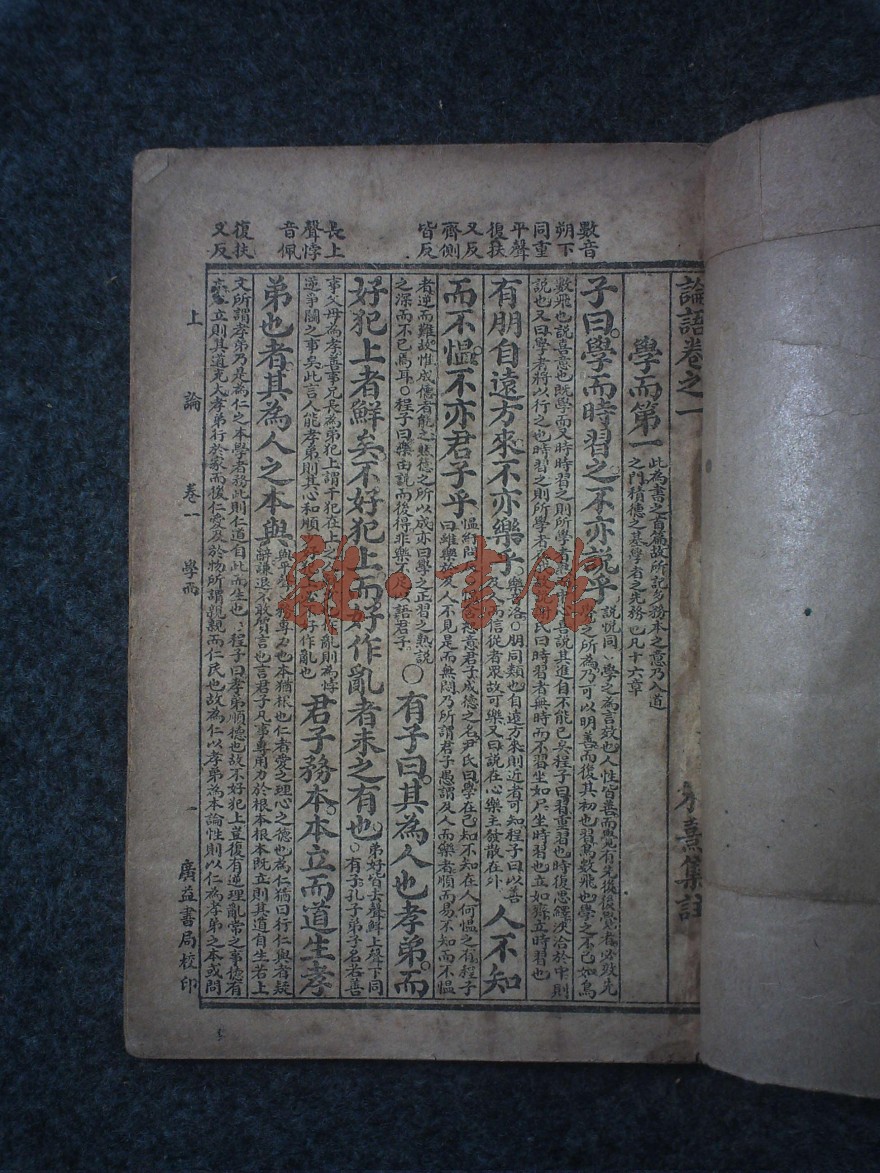 數音
朔下
同重
平聲
復扶
又反
齊側
皆反
長上
聲悖
音佩
復扶
又反
論語卷之一
朱熹集註
學而第一
此為書之首篇故所記多務本之意乃入道
之門積德之基學者之先務也凡十六章
子曰學而時習之不亦說乎
說悅同○學之為言效也人性皆善而覺有先後後覺者必效先
之所為乃可以明善而復其初也習鳥數飛也學之不已如鳥
數飛也說喜意也既學而又時時習之則所學者
喜說其進自不能已矣程子曰習重習也時復思繹浹洽於中則
說也又曰學者將以行之也時習之則所學者
氏曰時習者無時而不習坐如尸坐時習也立如齊立時習也
有朋自遠方來不亦樂乎
樂音洛○朋同類也自遠方來則近者可知程子曰以善
及人而信從者眾故可樂又曰說在心樂主發散在外
人不知
而不慍不亦君子乎
慍紆問
意君子成德之名尹氏曰學在己知不知在人何慍之有程子
曰雖樂於及人不見是而無悶乃所謂君子愚謂及人而樂者順而易不知而不慍
者逆而難故惟成德者能之然德之所以成亦曰學之正習之熟說
之深而不已焉耳○程子曰樂由說而後得非樂不足
語君子
○有子曰其為人也孝弟而
好犯上者鮮矣不好犯上而好作亂者未之有也
弟好皆去聲鮮上聲下同
○有子孔子弟子名若善
事父母為孝善事兄長為弟犯上謂干犯在上之
作亂則為悖
逆爭鬬之事矣此言人能孝弟則其心和順
好作亂也
君子務本本立而道生孝
弟也者其為人之本與
與平聲○務專力也本猶根也仁者愛之理心之德也為仁猶曰行仁與者疑
辭謙退不敢質言也言君子凡事專用力於根本根本既立則其道自生若上
文所謂孝弟乃是為仁之本學者務此則仁道自此而生也○程子曰孝弟順德也故不好犯上豈復有逆理亂常之事德有
本立則其道充大孝弟行於家而後仁愛及於物所謂親親而仁民也故為仁以孝弟為本論性則以仁為孝弟之本或問
上論 卷一 學而 一 廣益書局校印
雜·書館